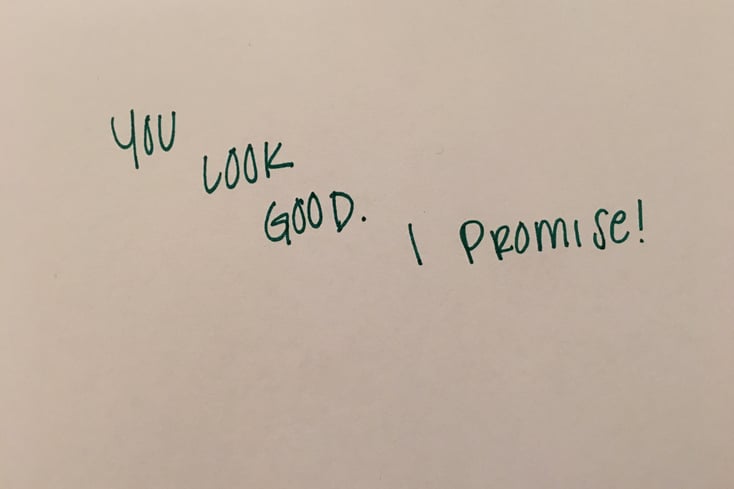 YOU
LOOK
GOOD.
I PROMISe!